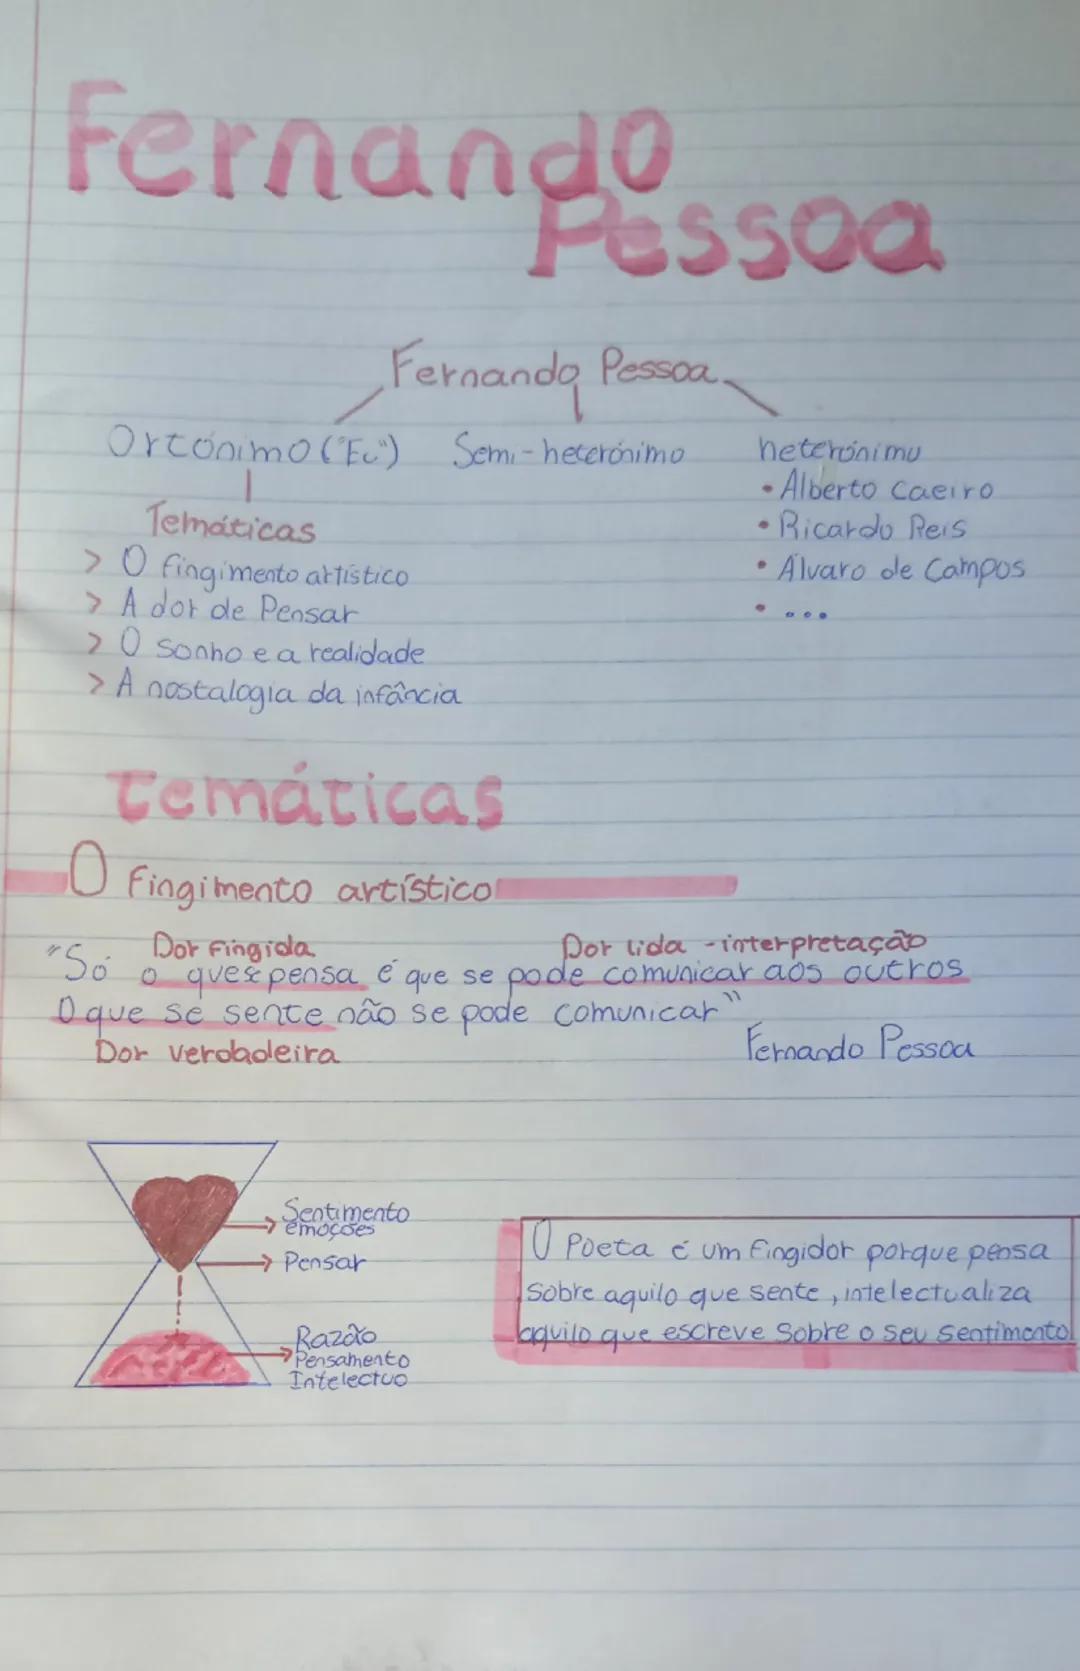 Fernando
Pessoa
Fernando Pessoa
Ortónimo ("Eu") Semi-heterónimo heterónimo
• Alberto Caeiro
• Ricardo Reis
• Álvaro de Campos
• ...
Temáticas
> O fingimento artístico
> A dor de Pensar
> O sonho e a realidade
> A nostalogia da infância
Temáticas
O fingimento artístico
Dor fingida Dor lida - interpretação
"Só o que se pensa é que se pode comunicar aos outros
O que se sente não se pode comunicar"
Dor verdadeira
Fernando Pessoa
Sentimento
emoções
Pensar
Razão
Pensamento
Intelectuo
O Poeta é um fingidor porque pensa
sobre aquilo que sente, intelectualiza
aquilo que escreve sobre o seu sentimento